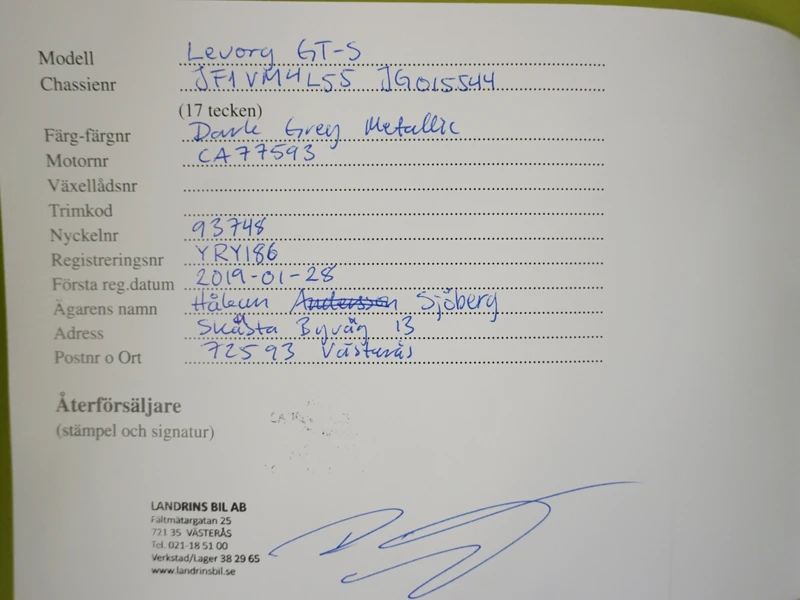 Modell Levorg GT-S
Chassienr JF1VM4L55 JG015544
(17 tecken)
Färg-färgnr Dark Grey Metallic
Motornr CA77593
Växellådsnr
Trimkod
Nyckelnr 93748
Registreringsnr YRY186
Första reg.datum 2019-01-28
Ägarens namn Håkan Andersson Sjöberg
Adress Skästa Byväg 13
Postnr o Ort 72593 Västerås
Återförsäljare
(stämpel och signatur)
LANDRINS BIL AB
Fältmätargatan 25
721 35 VÄSTERÅS
Tel. 021-18 51 00
Verkstad/Lager 38 29 65
www.landrinsbil.se